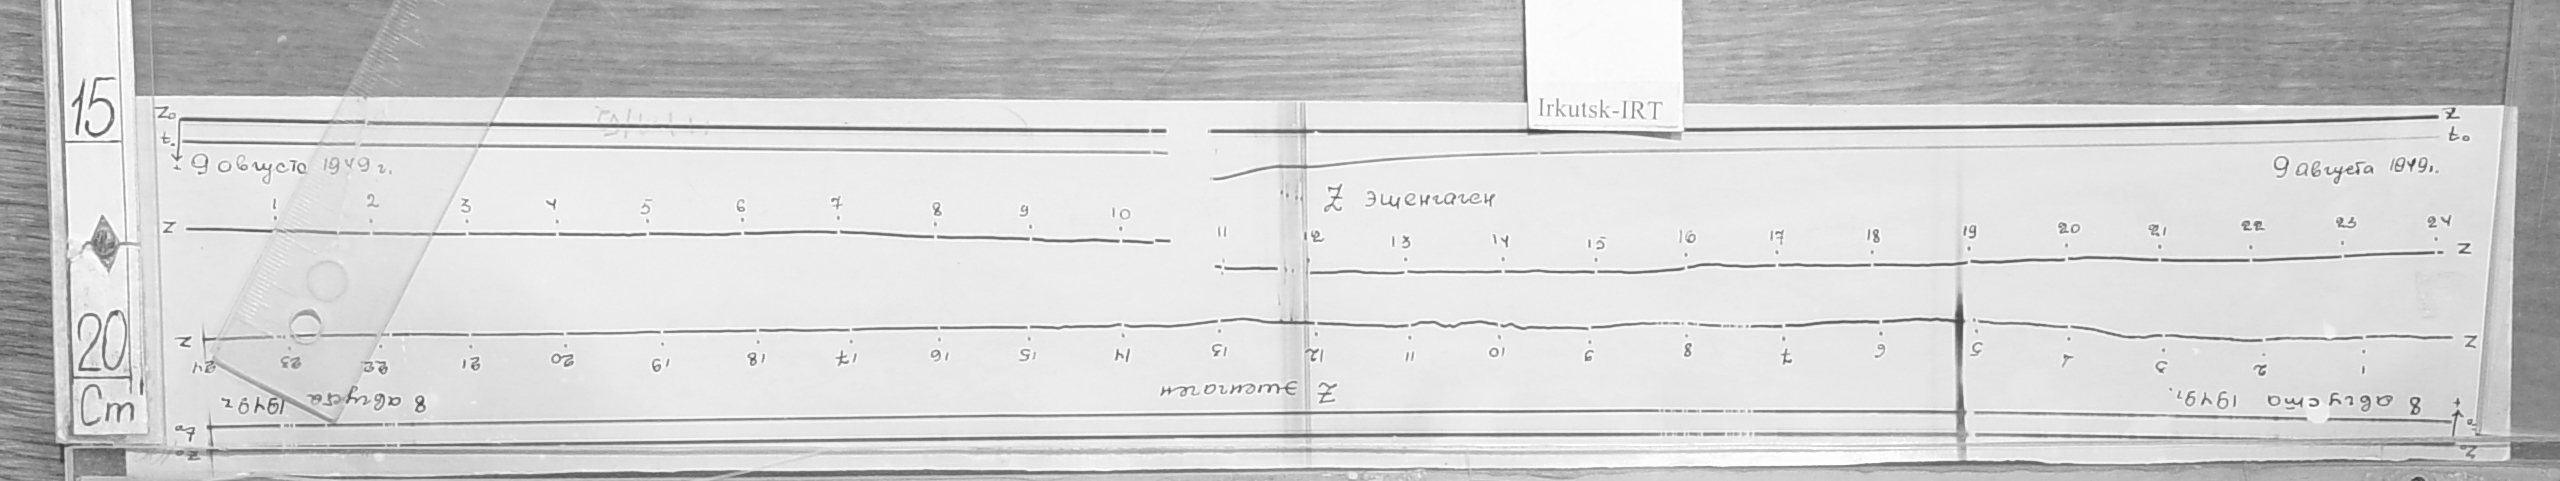 15
Irkutsk-IRT
Z₀ Z
t₀ t₀
9 августа 1949 г. 9 августа 1949г.
Z Эшенгаген
1 2 3 4 5 6 7 8 9 10 11 12 13 14 15 16 17 18 19 20 21 22 23 24
Z Z
20
Z Z
24 23 22 21 20 19 18 17 16 15 14 13 12 11 10 9 8 7 6 5 4 3 2 1
Z Эшенгаген
Cm
8 августа 1949г 8 августа 1949г.
t₀
Z₀ Z₀